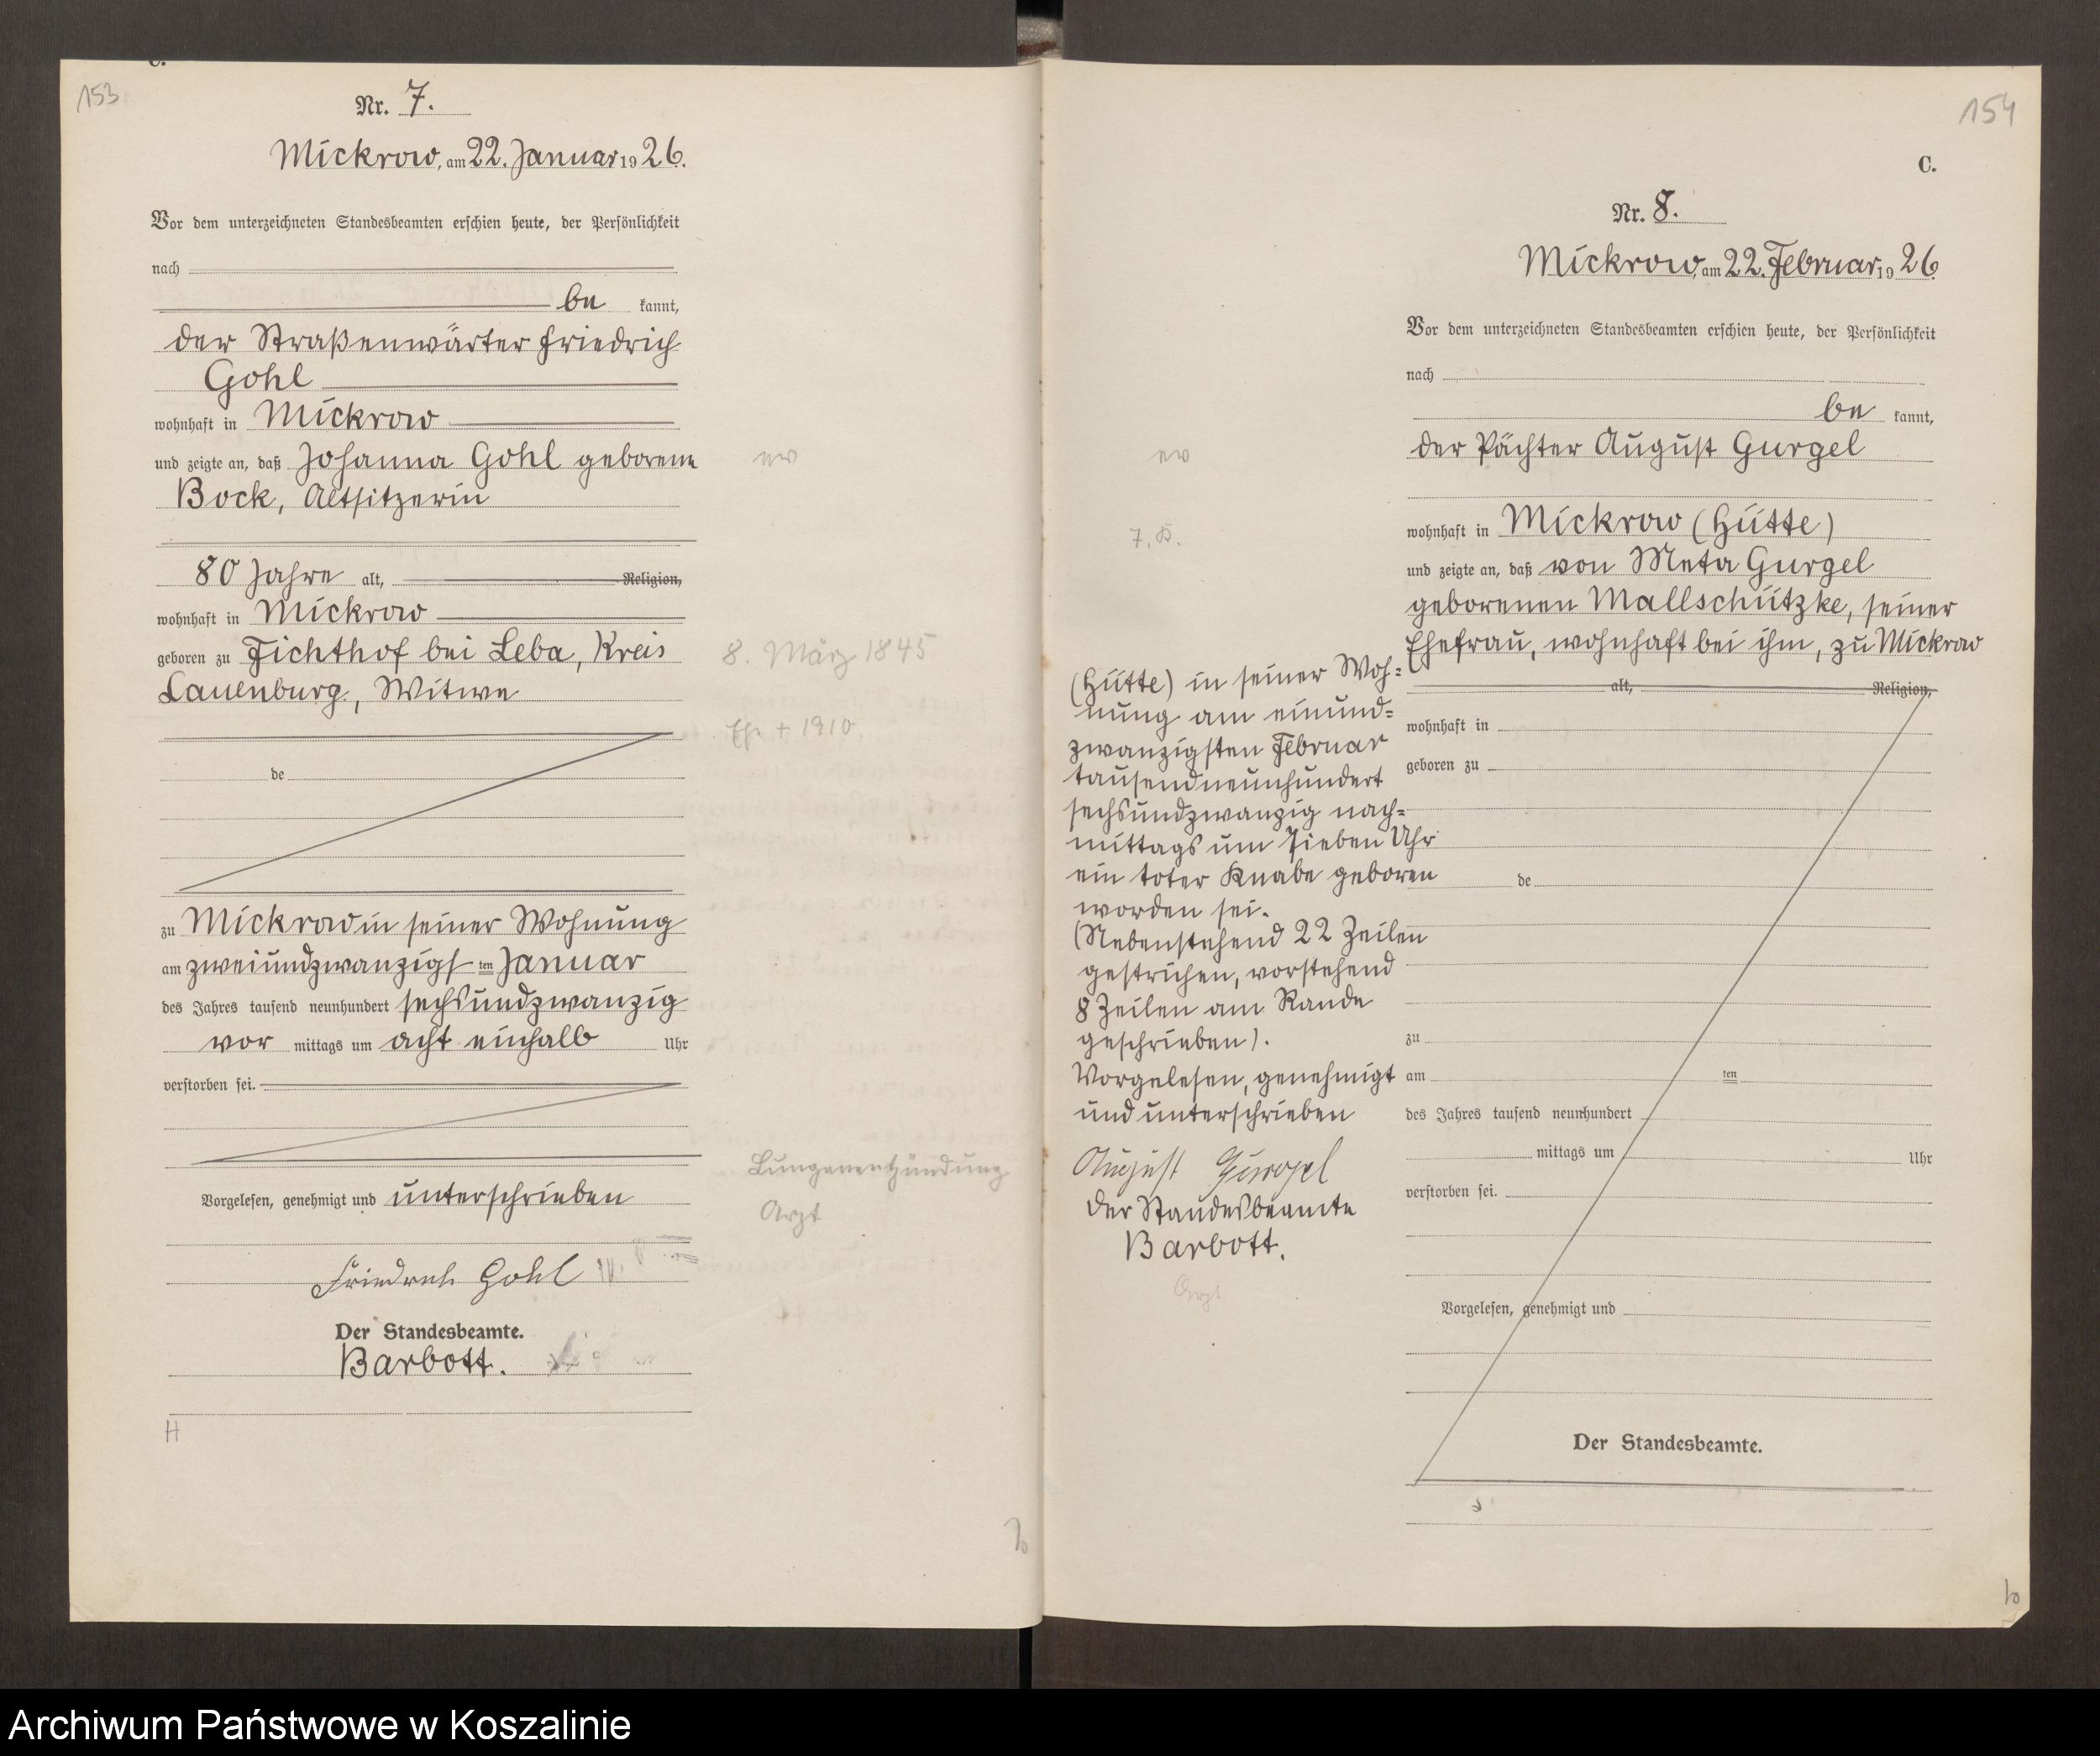 153
C.
Nr. 7.
Mickrow, am 22. Januar 1926.
Vor dem unterzeichneten Standesbeamten erschien heute, der Persönlichkeit
nach
be kannt,
der Straßenwärter Friedrich
Gohl
wohnhaft in Mickrow
und zeigte an, daß Johanna Gohl geborene
Bock, Altsitzerin
ev
80 Jahre alt, Religion,
wohnhaft in Mickrow
geboren zu Fichthof bei Leba, Kreis
Lauenburg, Witwe
8. März 1845
Ehe + 1910.
de
zu Mickrow in seiner Wohnung
am zweiundzwanzigs ten Januar
des Jahres tausend neunhundert sechsundzwanzig
vor mittags um acht einhalb Uhr
verstorben sei.
Lungenentzündung
Arzt
Vorgelesen, genehmigt und unterschrieben
Friedrich Gohl
Der Standesbeamte.
Barbott.
H
154
C.
Nr. 8.
Mickrow, am 22. Februar 1926.
Vor dem unterzeichneten Standesbeamten erschien heute, der Persönlichkeit
nach
be kannt,
der Pächter August Gurgel
ev
wohnhaft in Mickrow (Hütte)
7. K.
und zeigte an, daß von Meta Gurgel
geborenen Mallschützke, seiner
Ehefrau, wohnhaft bei ihm, zu Mickrow
(Hütte) in seiner Woh=
nung am einund=
zwanzigsten Februar
tausendneunhundert
sechsundzwanzig nach=
mittags um sieben Uhr
ein toter Knabe geboren
worden sei.
(Nebenstehend 22 Zeilen
gestrichen, vorstehend
8 Zeilen am Rande
geschrieben).
Vorgelesen, genehmigt
und unterschrieben
August Gurgel
Der Standesbeamte
Barbott.
Arzt
alt, Religion,
wohnhaft in
geboren zu
de
zu
am ten
des Jahres tausend neunhundert
mittags um Uhr
verstorben sei.
Vorgelesen, genehmigt und
Der Standesbeamte.
Archiwum Państwowe w Koszalinie